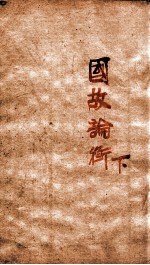 國故論衡
下